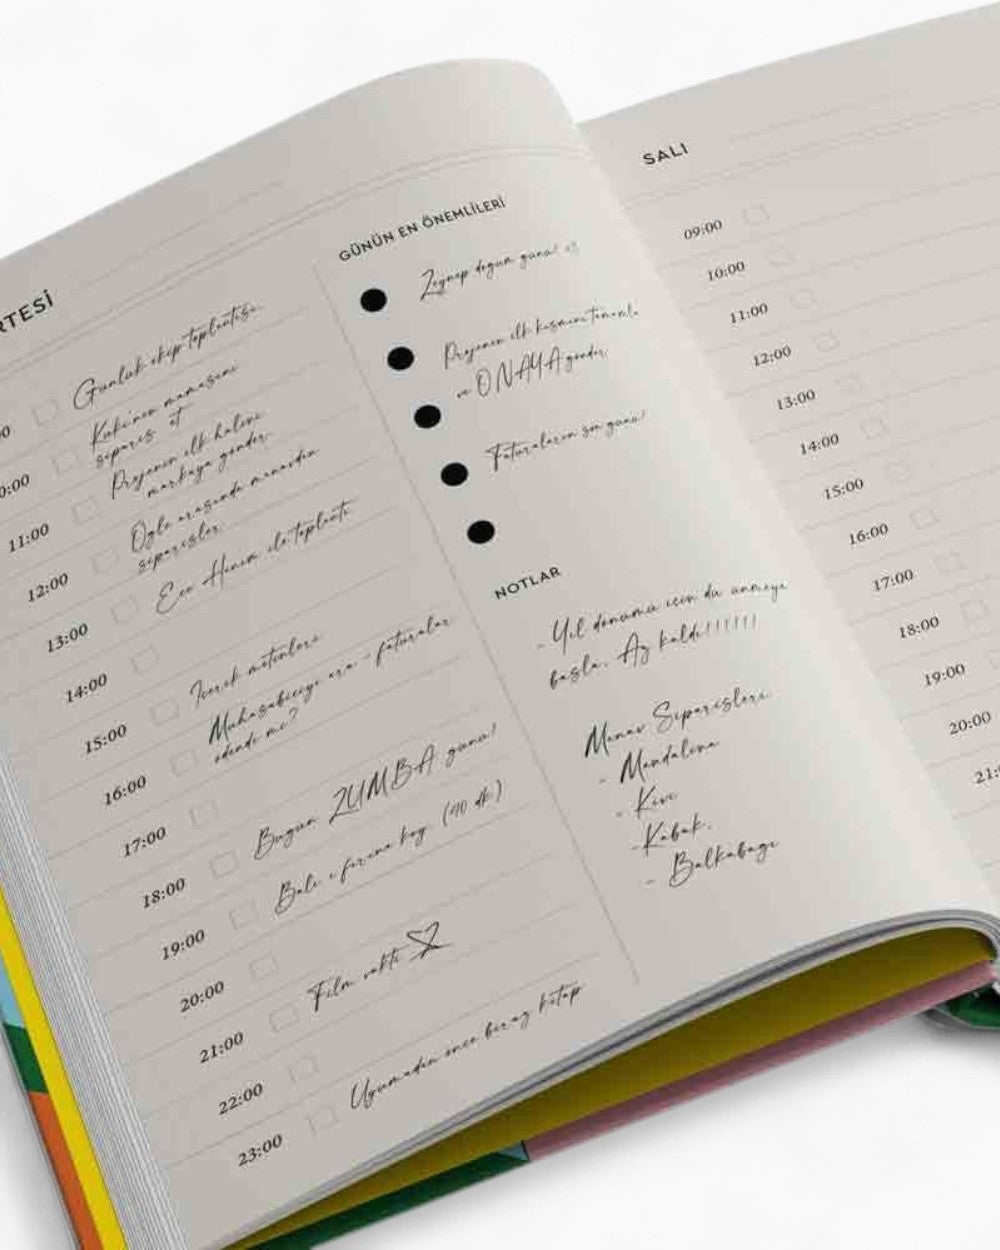 RTESİ
Günlük ekip toplantısı
10:00
Kuki'nin mamasını
sipariş et
11:00
Projenin ilk halini
markaya gönder.
12:00
Öğle arasında manavdan
siparişler
13:00
Ece Hanım ile toplantı
14:00
15:00
İçerik metinleri
16:00
Muhasebeciyi ara - faturalar
ödendi mi?
17:00
18:00
Bugün ZUMBA günü!
19:00
Balı fırına koy (40 dk.)
20:00
21:00
Film vakti
22:00
23:00
Uyumadan önce biraz kitap
GÜNÜN EN ÖNEMLİLERİ
Zeynep doğum günü! <3
Projenin ilk kısmını tamamla
ve ONAYA gönder
Faturaların son günü!
NOTLAR
- Yıl dönümü için düşünmeye
başla. Az kaldı!!!!!!!
Manav Siparişleri
- Mandalina
- Kivi
- Kabak.
- Balkabağı
SALI
09:00
10:00
11:00
12:00
13:00
14:00
15:00
16:00
17:00
18:00
19:00
20:00
21: